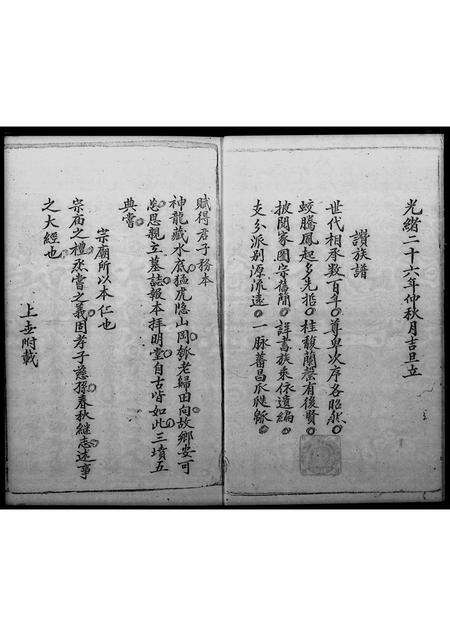 光緒二十六年仲秋月吉旦立
讚族譜
世代相承数百年尊卑次序各昭然
蛟騰鳳起多先哲桂馥蘭馨有後賢
披閱家圖宗舊簡詳書族乘依遺編
支分派别源流遠一脉蕃昌瓜瓞緜
賦得君子務本
神龍藏水底猛虎隱山岡 老歸田向故鄉安可
忘恩親立墓誌報本拜明堂自古皆如此三墳五
典嘗
宗廟所以本仁也
宗庙之禮烝嘗之義固孝子慈孫春秋繼志述事
之大經也
上並附載